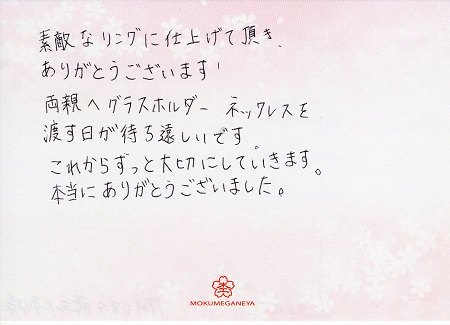 素敵なリングに仕上げて頂き、
ありがとうございます!
両親へグラスホルダー ネックレスを
渡す日が待ち遠しいです。
これからずっと大切にしていきます。
本当にありがとうございました。
MOKUMEGANEYA